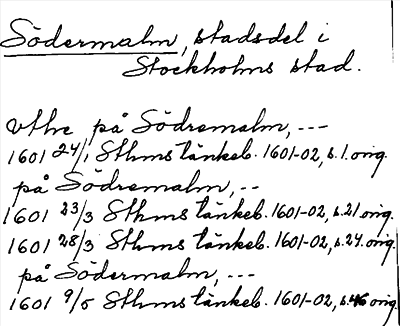 Södermalm, stadsdel i
Stockholms stad.
vthe på Södremalm, ---
1601 24/1 Sthms tänkeb. 1601-02, s. 1. orig.
på Södremalm, --
1601 23/3 Sthms tänkeb. 1601-02, s. 21 orig.
1601 28/3 Sthms tänkeb. 1601-02, s. 24. orig.
på Södermalm, ---
1601 9/5 Sthms tänkeb. 1601-02, s. 46 orig.